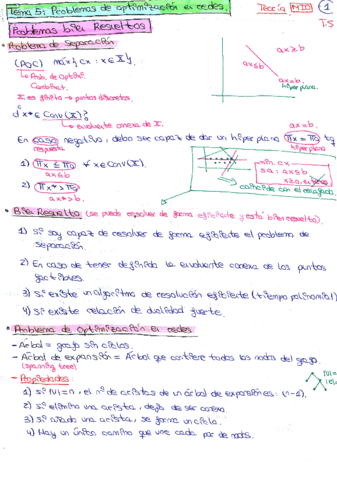 Tema 5: Problemas de optimización en redes.
Teoría MID
1
T.5
Problemas bien Resueltos
• Problema de Separación
(POC) máx{cx : x ∈ X}
Prob. de Optim.
Combinat.
X es finito → puntos discretos.
¿ x* ∈ Conv(X) ?
envolvente conexa de X.
ax ≥ b
ax ≤ b
ax = b.
hiperplano.
ax = b.
En caso negativo, debo ser capaz de dar un hiperplano πx = π₀ tq
respuesta
hiperplano
1) πx ≤ π₀ ∀ x ∈ Conv(X).
ax ≤ b
2) πx* > π₀
ax* > b.
min. cx
sa: ax ≤ b
coincide con el relajado
• Bien Resuelto (se puede resolver de forma eficiente y está bien resuelto).
1) Si soy capaz de resolver de forma eficiente el problema de
separación.
2) En caso de tener definida la envolvente conexa de los puntos
factibles.
3) Si existe un algoritmo de resolución eficiente (tiempo polinomial)
4) Si existe relación de dualidad fuerte.
• Problema de Optimización en redes
- Árbol = grafo sin ciclos.
- Árbol de expansión = Árbol que contiene todos los nodos del grafo.
(spanning tree)
- Propiedades:
1) Si |V| = n, el nº de aristas de un árbol de expansión es: (n-1).
2) Si elimino una arista, deja de ser conexo.
3) Si añado una arista, se forma un ciclo.
4) Hay un único camino que une cada par de nodos.